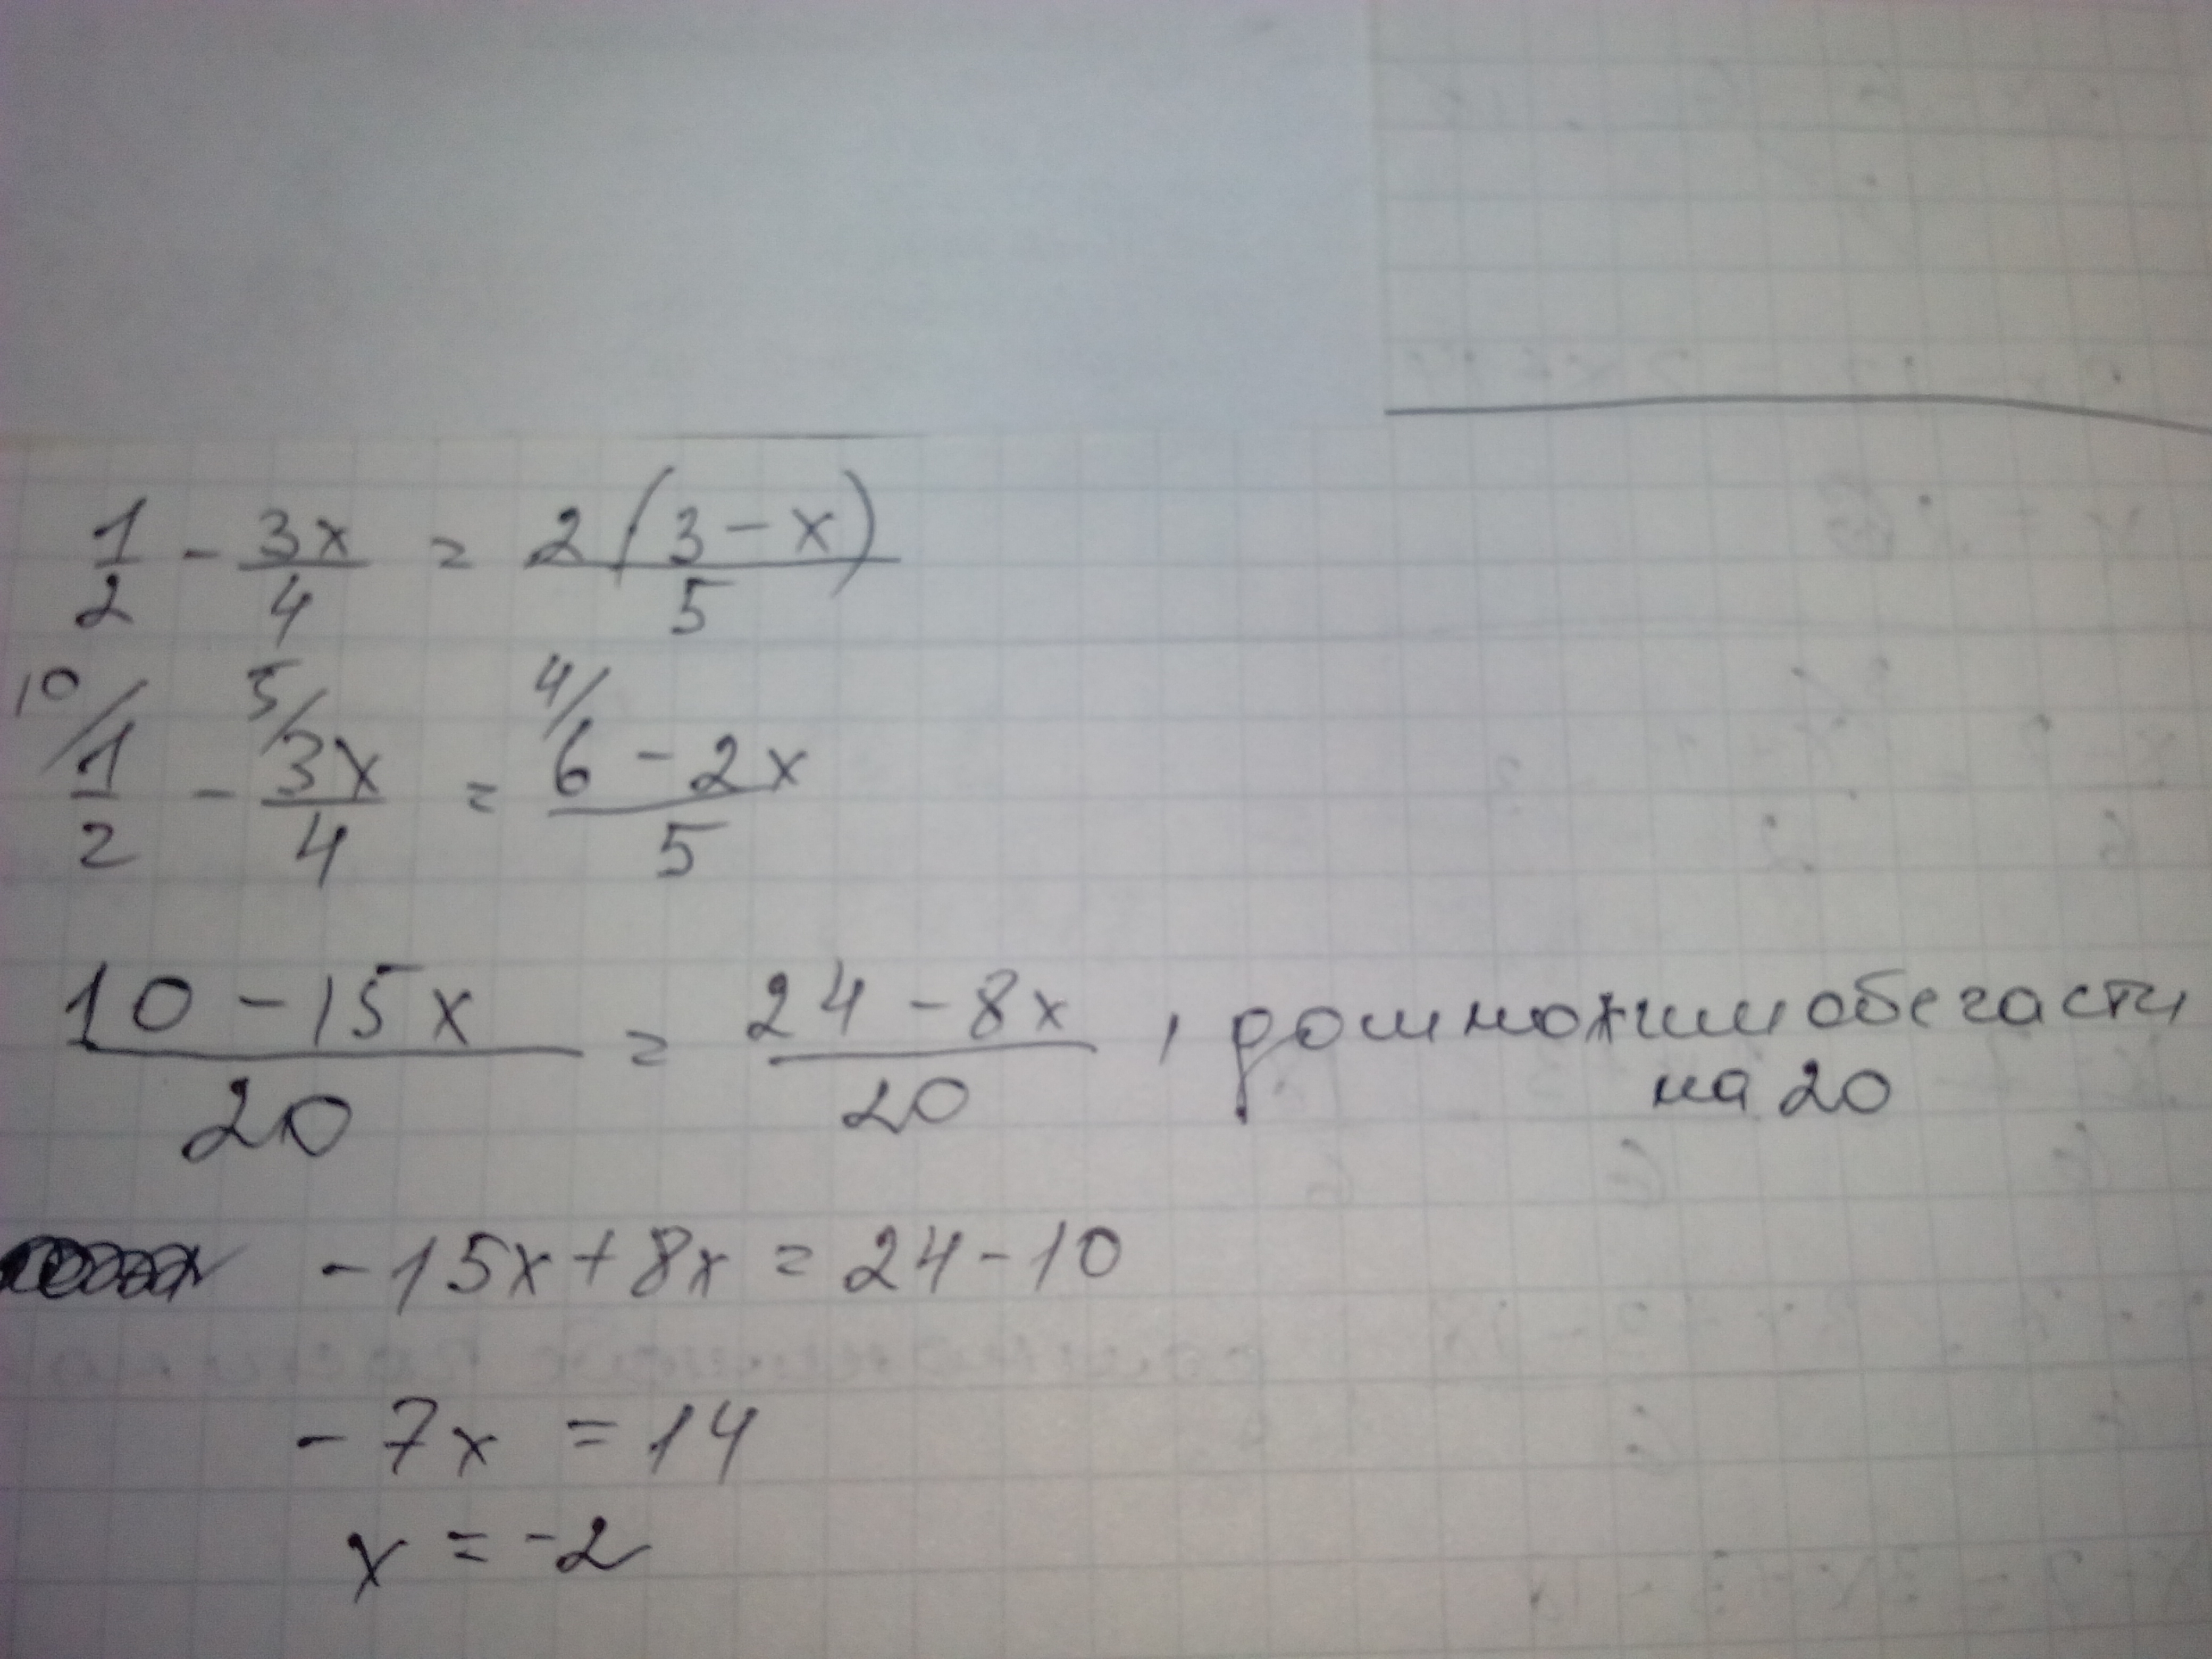 1/2 - 3x/4 = 2(3-x)/5
10/ 1/2 - 5/ 3x/4 = 4/ 6-2x/5
10-15x/20 = 24-8x/20 , домножим обе части
на 20
-15x+8x=24-10
-7x=14
x=-2